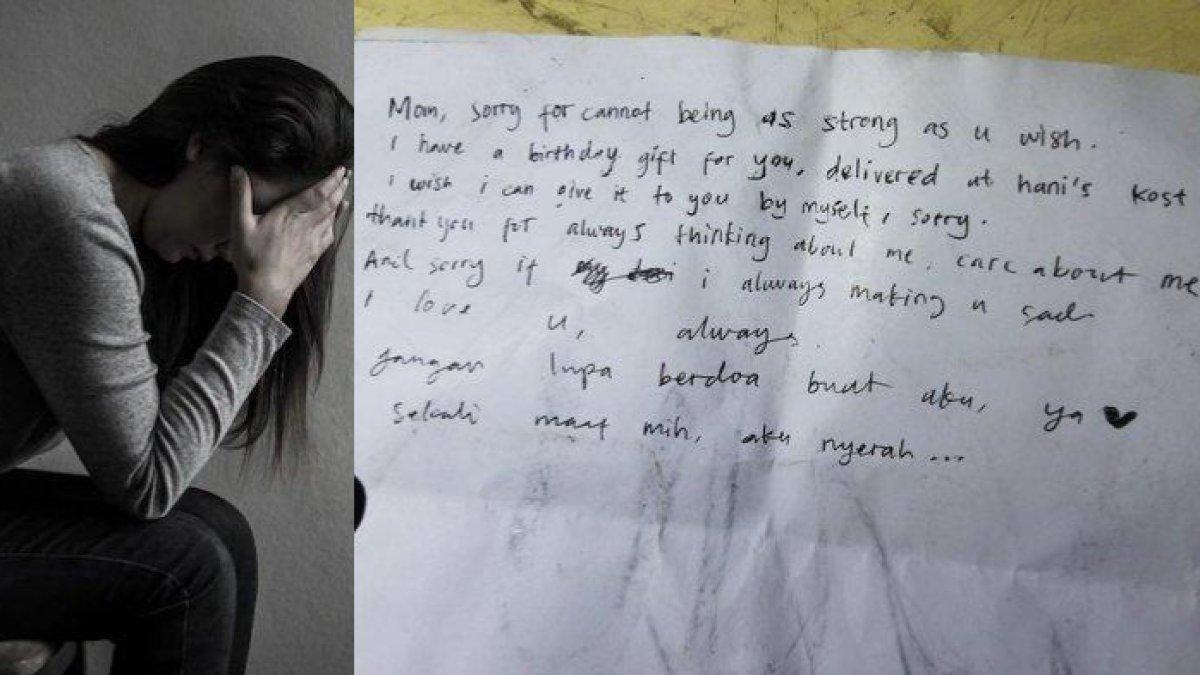 Mom, sorry for cannot being as strong as u wish.
I have a birthday gift for you, delivered at hani's kost
I wish i can give it to you by myself, sorry.
thank you for always thinking about me, care about me
And sorry if i always making u sad
I love u, always.
jangan lupa berdoa buat aku, ya
Sekali maaf mih, aku nyerah...